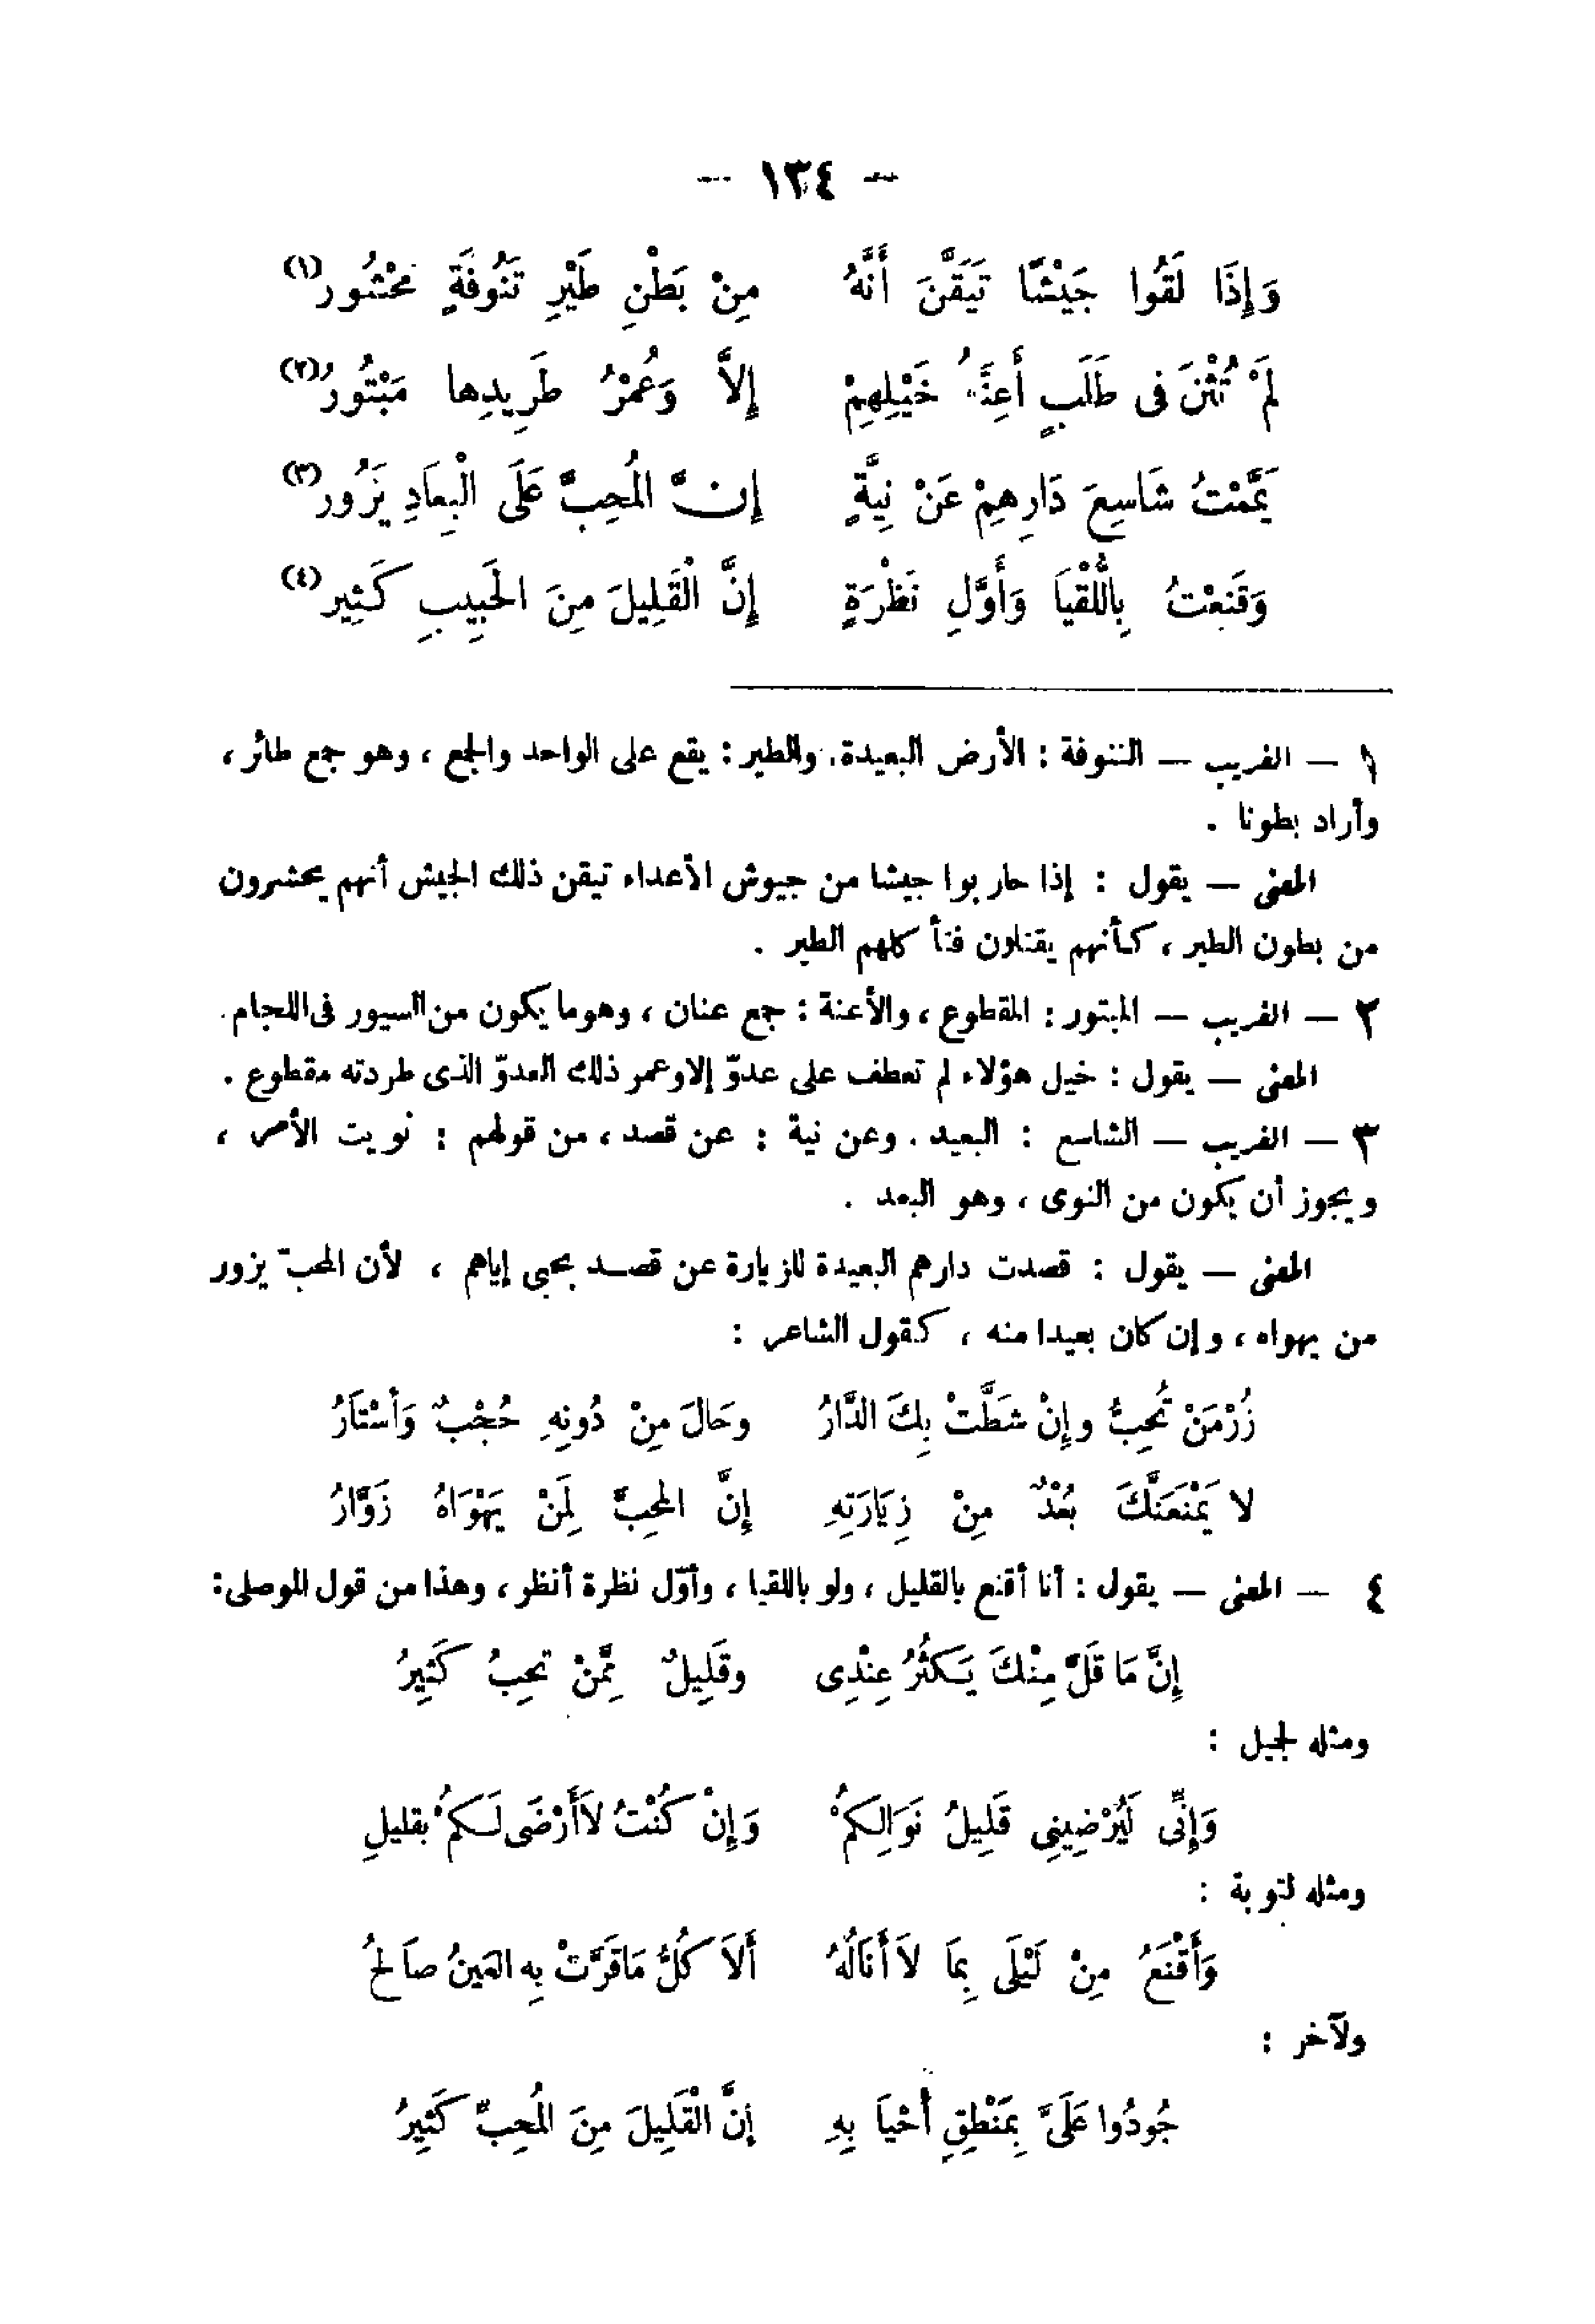 – ١٣٤ –
وَإِذَا لَقُوا جَيْشًا تَيَقَّنَ أَنَّهُ مِنْ بَطْنِ طَيْرِ تَنُوفَةٍ مَحْشُورُ (١)
لَمْ تُثْنَ فى طَلَبٍ أَعِنَّةُ خَيْلِهِمْ إِلاَّ وَعُمْرُ طَرِيدِها مَبْتُورُ (٢)
يَمَّمْتُ شَاسِعَ دَارِهِمْ عَنْ نِيَّةٍ إِنَّ الْمُحِبَّ عَلَى الْبِعَادِ يَزُورُ (٣)
وَقَنِعْتُ بِاللُّقْيَا وَأَوَّلِ نَظْرَةٍ إِنَّ الْقَلِيلَ مِنَ الحَبِيبِ كَثِيرُ (٤)
١ — الغريب — التنوفة : الأرض البعيدة. والطير : يقع على الواحد والجمع ، وهو جمع طائر ،
وأراد بطونا .
المعنى — يقول : إذا حاربوا جيشا من جيوش الأعداء تيقن ذلك الجيش أنهم يحشرون
من بطون الطير ، كأنهم يقتلون فتأكلهم الطير .
٢ — الغريب — المبتور : المقطوع ، والأعنة : جمع عنان ، وهو ما يكون من السيور فى اللجام.
المعنى — يقول : خيل هؤلاء لم تعطف على عدوّ إلا وعمر ذلك العدوّ الذى طردته مقطوع .
٣ — الغريب — الشاسع : البعيد . وعن نية : عن قصد ، من قولهم : نويت الأمر ،
ويجوز أن يكون من النوى ، وهو البعد .
المعنى — يقول : قصدت دارهم البعيدة للزيارة عن قصد بحبى إياهم ، لأن المحبّ يزور
من يهواه ، وإن كان بعيدا منه ، كقول الشاعر :
زُرْ مَنْ تُحِبُّ وإِنْ شَطَّتْ بِكَ الدَّارُ وحَالَ مِنْ دُونِهِ حُجْبٌ وَأَسْتَارُ
لا يَمْنَعَنَّكَ بُعْدٌ مِنْ زِيَارَتِهِ إِنَّ المحِبَّ لِمَنْ يَهْوَاهُ زَوَّارُ
٤ — المعنى — يقول : أنا أقنع بالقليل ، ولو باللقيا ، وأوّل نظرة أنظر ، وهذا من قول الموصلى :
إِنَّ مَا قَلَّ مِنْكَ يَكثُرُ عِنْدِى وقَلِيلٌ مِمَّنْ تحِبُ كَثِيرُ
ومثله لجميل :
وَإِنِّى لَيُرْضِينِى قَلِيلُ نَوَالِكُمْ وَإِنْ كُنْتُ لاَ أَرْضَى لَكُمْ بقليلِ
ومثله لتوبة :
وَأَقْنَعُ مِنْ لَيْلَى بِمَا لاَ أَنَالُهُ أَلاَ كُلُّ مَا قَرَّتْ بِهِ العَينُ صاَلحُ
ولآخر :
جُودُوا عَلَىَّ بِمَنْطِقٍ أَحْيَا بِهِ إِنَّ الْقَلِيلَ مِنَ الْمُحِبِّ كَثِيرُ